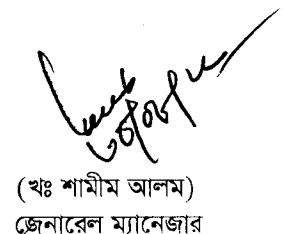 (খঃ শামীম আলম)
জেনারেল ম্যানেজার